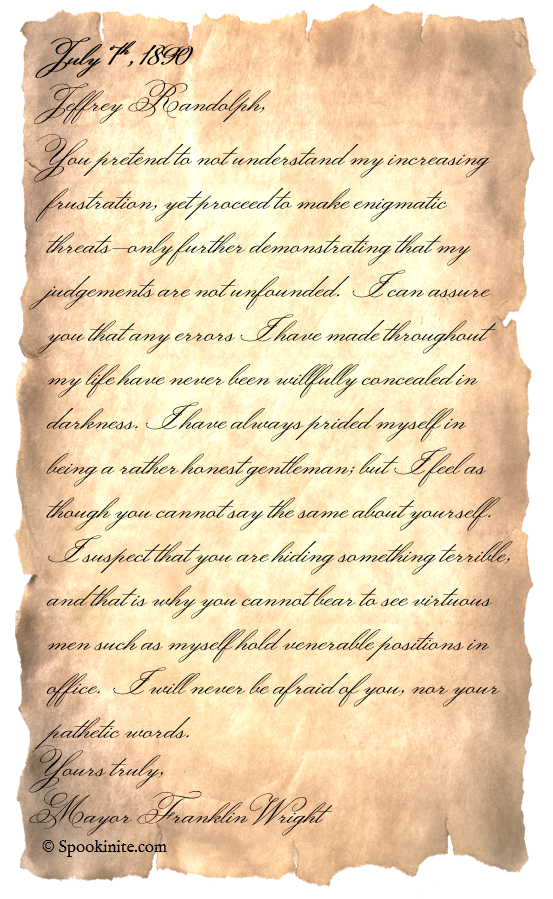 July 7th, 1890
Jeffrey Randolph,
You pretend to not understand my increasing
frustration, yet proceed to make enigmatic
threats—only further demonstrating that my
judgements are not unfounded. I can assure
you that any errors I have made throughout
my life have never been willfully concealed in
darkness. I have always prided myself in
being a rather honest gentleman; but I feel as
though you cannot say the same about yourself.
I suspect that you are hiding something terrible,
and that is why you cannot bear to see virtuous
men such as myself hold venerable positions in
office. I will never be afraid of you, nor your
pathetic words.
Yours truly,
Mayor Franklin Wright
© Spookinite.com